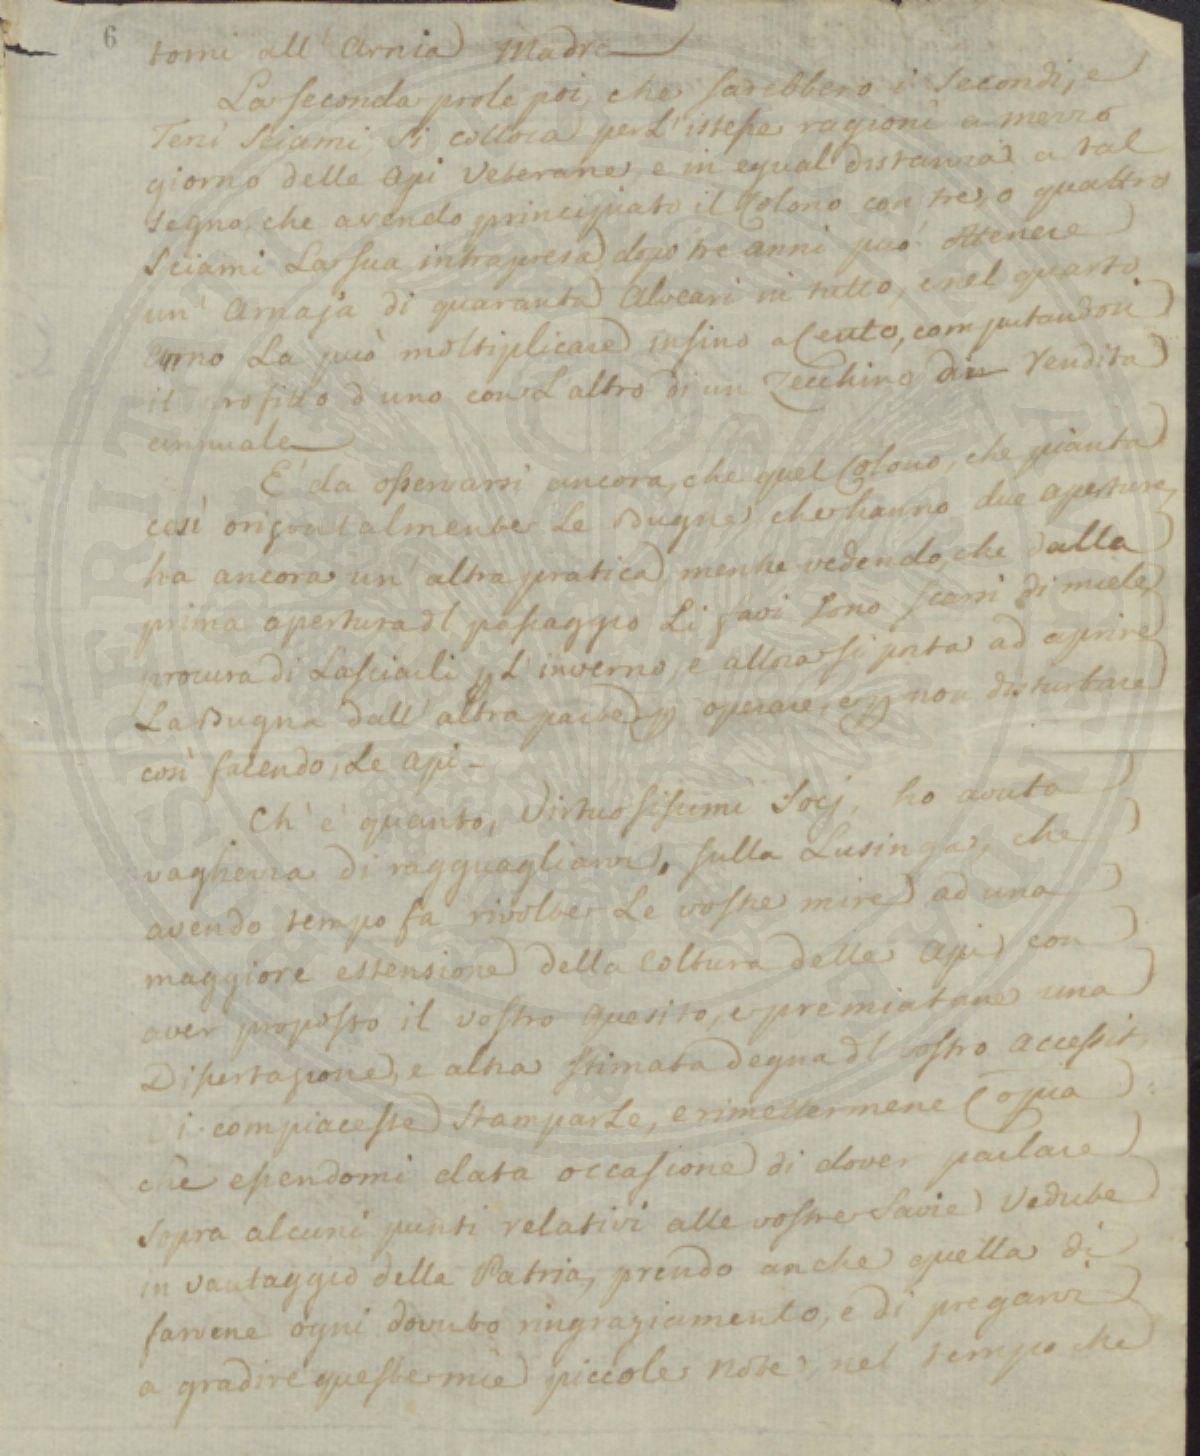 6
torni all' Arnia Madre
La seconda prole poi, che sarebbero i Secondi, e
Terzi Sciami, si colloca per l' istesse ragioni a mezzo
giorno delle Api Veterane, e in egual distanza a tal
segno, che avendo principiato il Colono con tre, o quattro
Sciami La sua intrapresa, dopo tre anni può ottenere
un' Arnaja di quaranta Alveari in tutto, e nel quarto
Anno La può moltiplicare insino a Cento, computandosi
il profitto d'uno con L'altro di un Zecchino di Rendita
annuale
E' da osservarsi ancora, che quel Colono, che pianta
così orizontalmente Le Bugne che hanno due aperture,
ha ancora un' altra pratica, mentre vedendo, che dalla
prima apertura dl passaggio Li favi sono scarsi di miele,
procura di Lasciarli p L' inverno, e allora si porta ad aprire
La Bugna dall' altra parte p operare, e p non disturbare
così facendo, Le Api -
Ch' è quanto, Virtuosissimi Socj, ho avuta
vaghezza di ragguagliarvi, sulla Lusinga, che
avendo tempo fa rivolte Le vostre mire ad una
maggiore estensione della Coltura delle Api, con
aver proposto il vostro Quesito, e premiatane una
Dissertazione, e altra stimata degna dl vostro Accessit
Vi compiaceste Stamparle, e rimettermene Copia:
che essendomi data occasione di dover parlare
sopra alcuni punti relativi alle vostre Savie Vedute
in vantaggio della Patria, prendo anche quella di
farvene ogni dovuto ringraziamento, e di pregarvi
a gradire queste mie piccole Note, nel tempo che
SPERITE